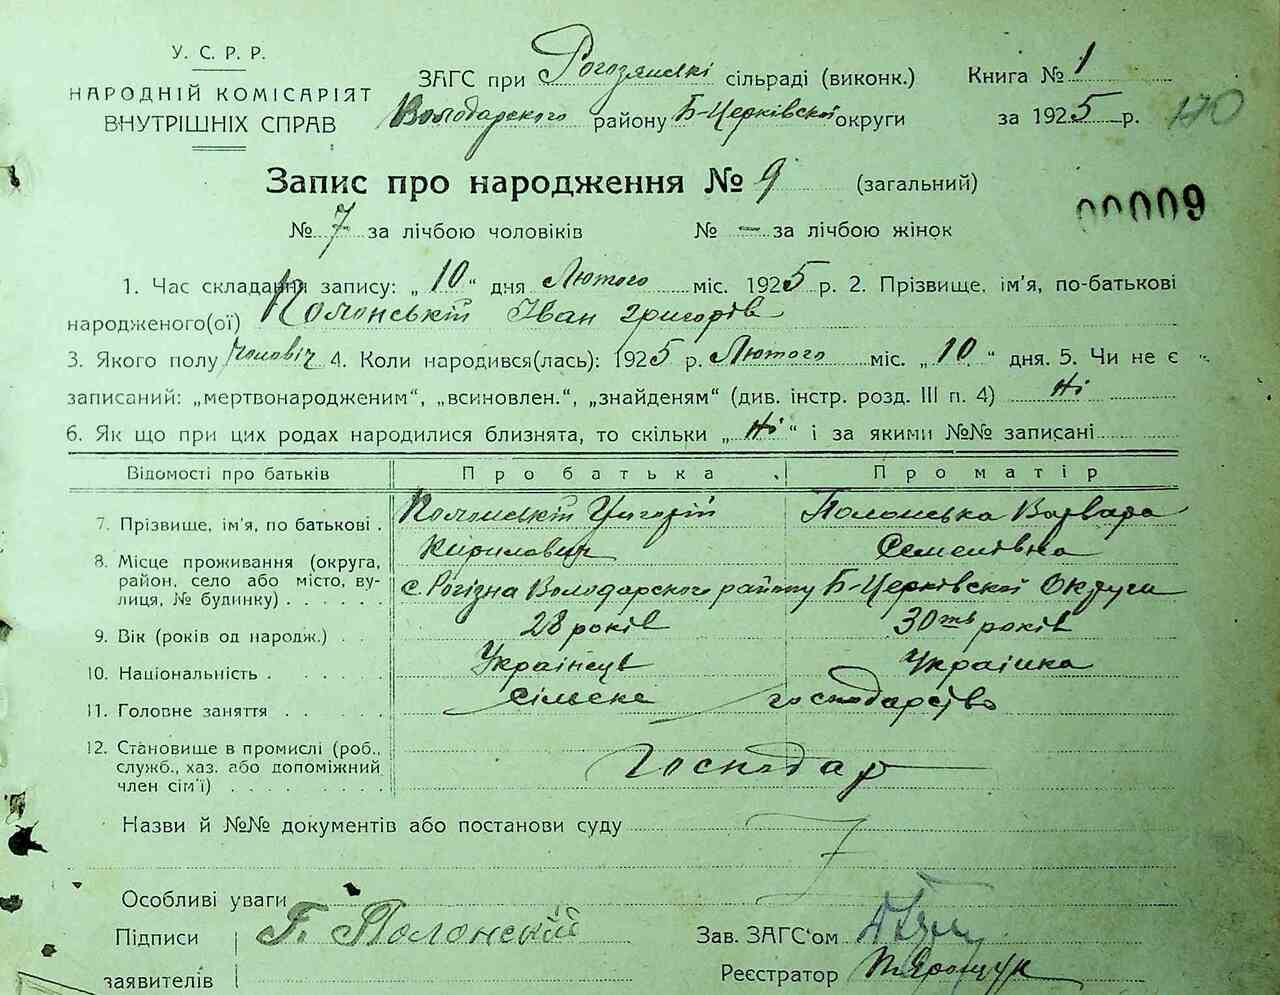 У. С. Р. Р.
НАРОДНІЙ КОМІСАРІЯТ
ВНУТРІШНІХ СПРАВ
ЗАГС при Рогозянські сільраді (виконк.)
Володарского району Б-Церківскої округи
Книга № 1
за 1925 р.
170
Запис про народження № 9 (загальний)
00009
№ 7 за лічбою чоловіків № — за лічбою жінок
1. Час складання запису: „ 10 “ дня Лютого міс. 1925 р. 2. Прізвище, ім'я, по-батькові
народженого(ої) Полонській Іван Григорів
3. Якого полу чоловіч 4. Коли народився(лась): 1925 р. Лютого міс. „ 10 “ дня. 5. Чи не є
записаний: „мертвонародженим“, „всиновлен.“, „знайденям“ (див. інстр. розд. III п. 4) Ні
6. Як що при цих родах народилися близнята, то скільки „ Ні “ і за якими №№ записані
Відомості про батьків Про батька Про матір
7. Прізвище, ім'я, по батькові . Полонській Григорій Полонська Варвара
Кирилович Семенівна
8. Місце проживання (округа,
район, село або місто, ву-
лиця, № будинку) . . . . . . с. Рогізна Володарского району Б-Церківскої Округи
9. Вік (років од народж.) . 28 років 30ть років
10. Національність . . . . . . Українець Українка
11. Головне заняття . . . . . Сільске господарство
12. Становище в промислі (роб.,
служб., хаз. або допоміжний
член сім'ї) . . . . . . . . Господар
Назви й №№ документів або постанови суду
Особливі уваги
Підписи Г. Полонский
заявителів
Зав. ЗАГС'ом
Реєстратор Ярощук